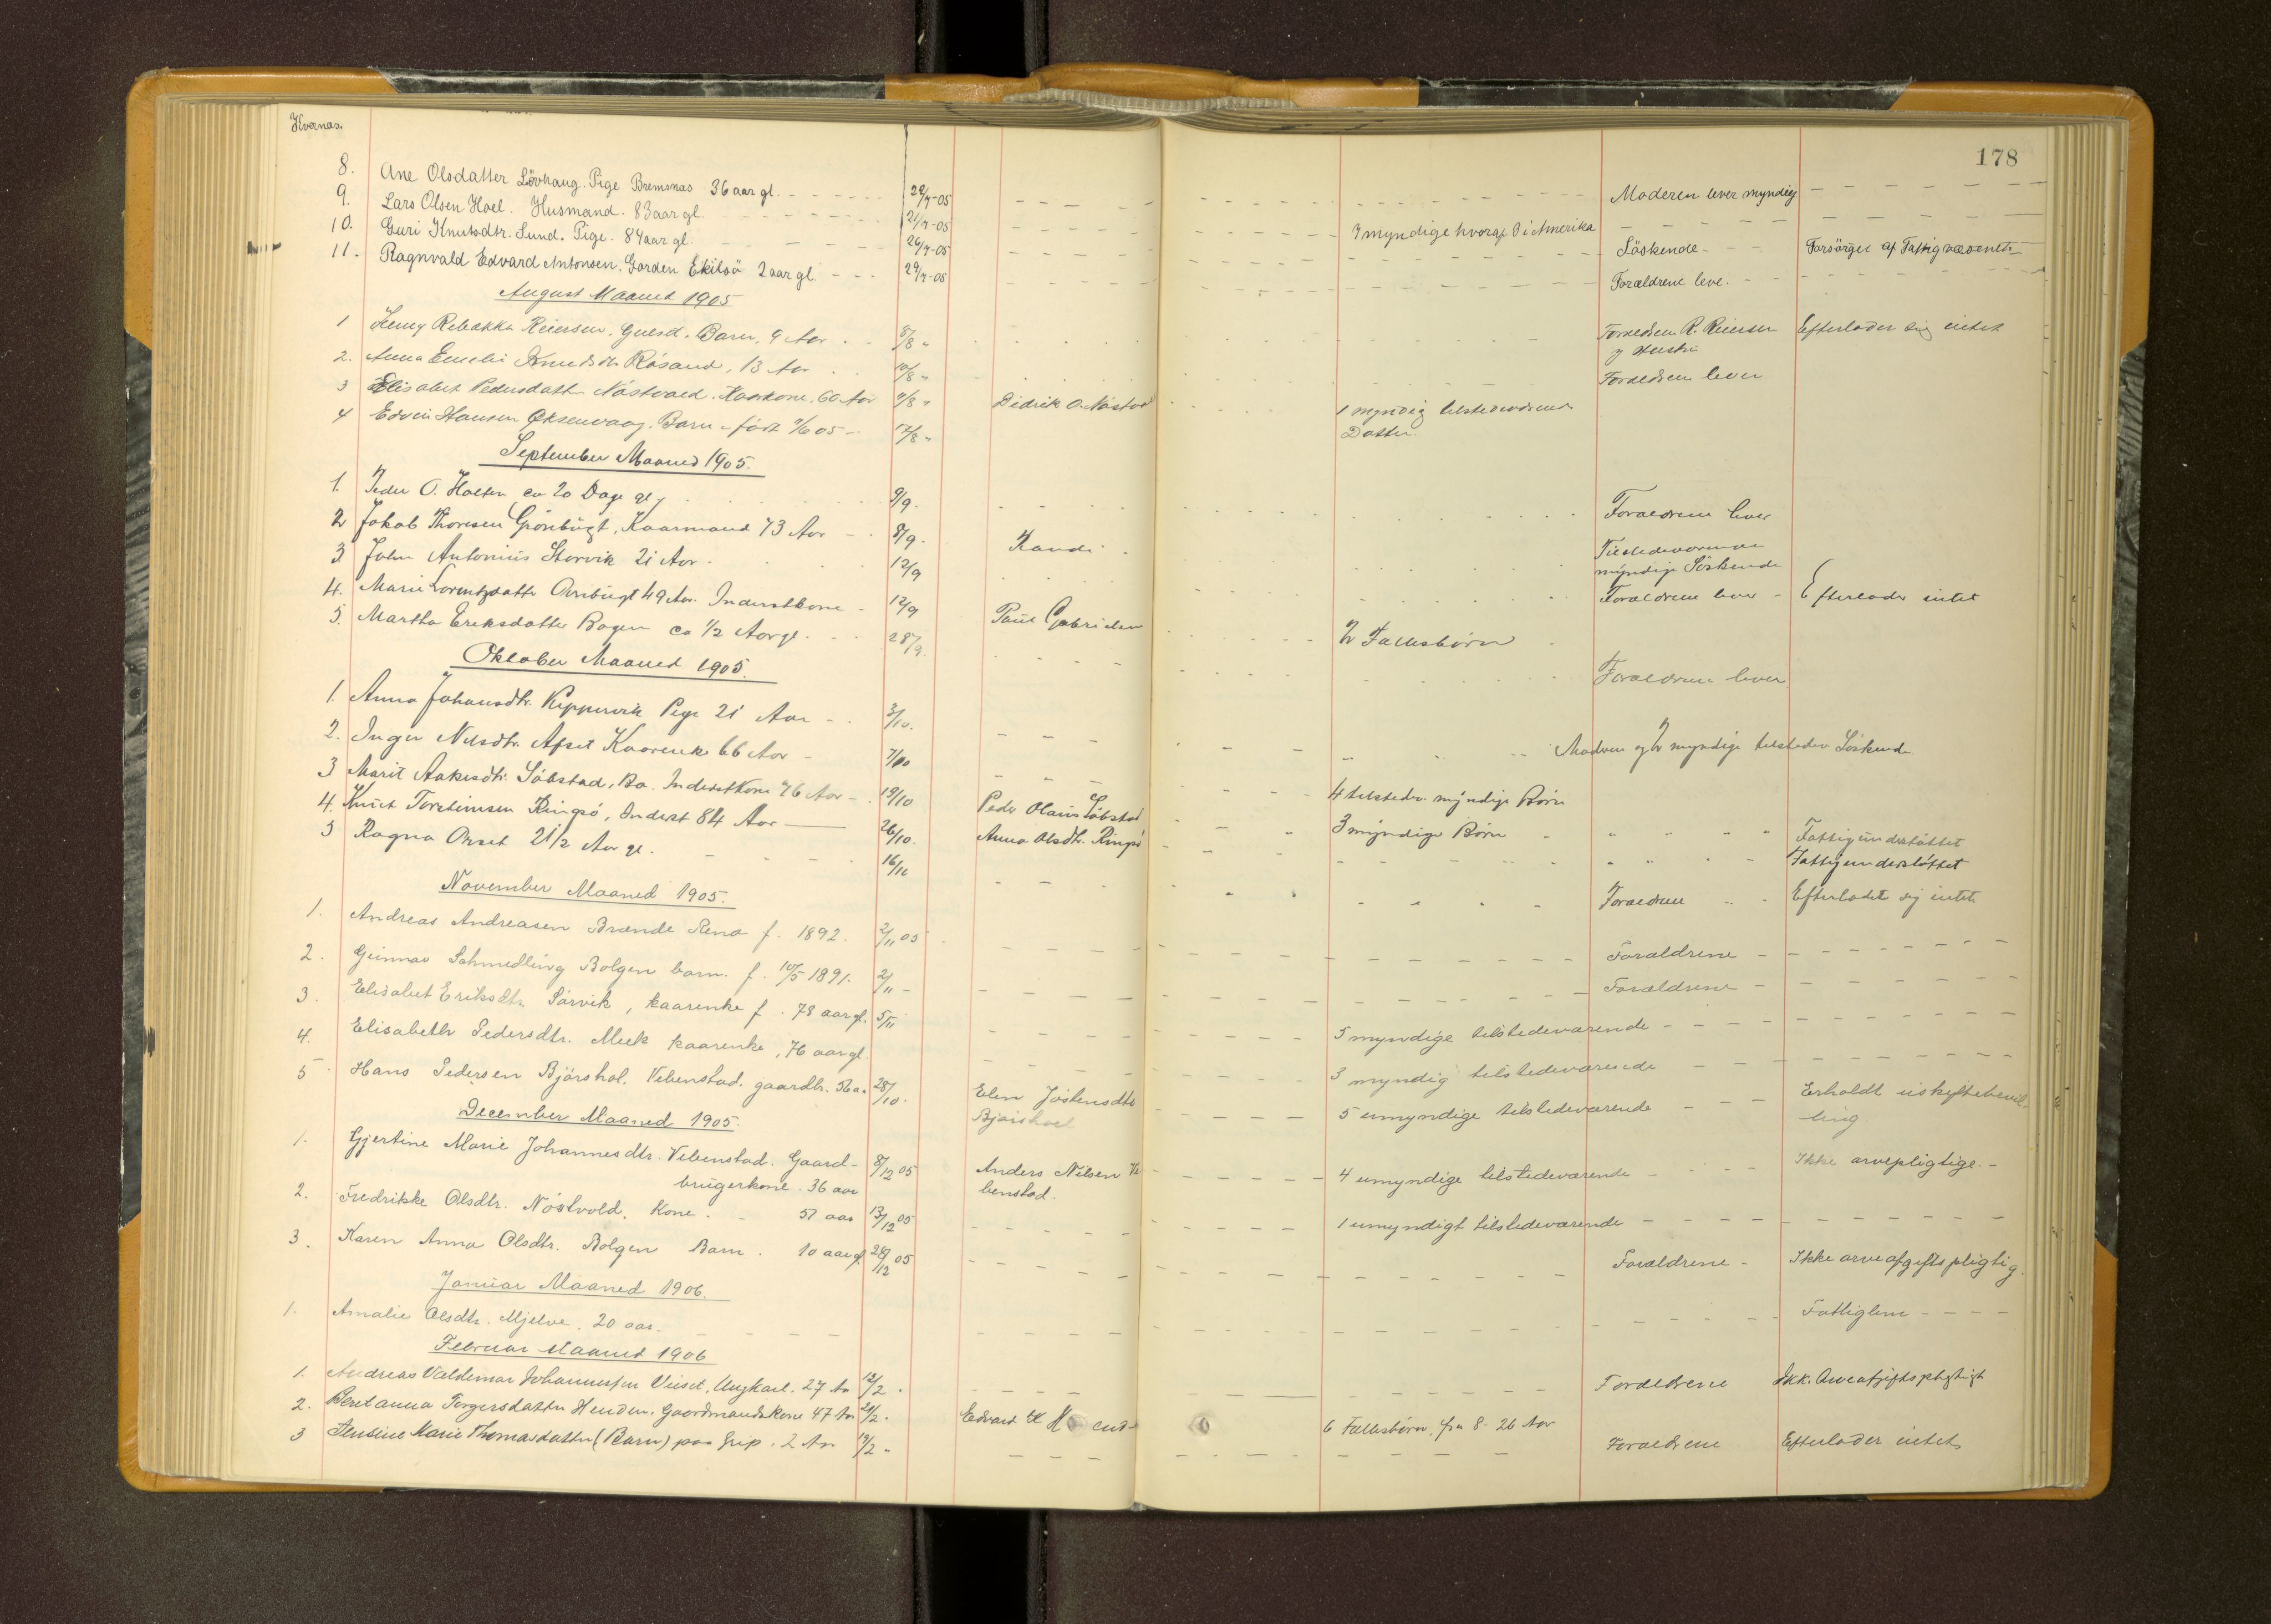 Kvernæs.
178
8. Ane Olsdatter Lövhaug. Pige Bremsnæs 36 aar gl. 29/7-05 Moderen lever myndig
9. Lars Olsen Hoel. Husmand. 83 aar gl. 21/7-05 7 myndige hvoraf 3 i Amerika
10. Guri Knutsdtr. Sund. Pige. 84 aar gl. 26/7-05 Söskende Forsörget af Fattigvæsenet
11. Ragnvald Edvard Antonsen. Garden Ekilsö 2 aar gl. 29/7-05 Forældrene leve.
August Maaned 1905
1 Jenny Rebekka Reiersen, Barn, 9 Aar 8/8 " Forældren R. Reiersen Efterlader sig intet
og Hustru
2. Anna Emelie Knudsdtr Rösand, 13 Aar 10/8 " Forældren lever
3 Elisabet Pedersdatter Nästvold. Kaarkone, 60 Aar 9/8 " Didrik O. Nästvo 1 myndig tilstedeværende
Datter.
4 Edvin Hansen Öksenvaag. Barn - født 05 - 17/8 "
September Maaned 1905.
1. Peder O. Holten ca 20 Dage gl. 9/9. Forældrene lever
2 Jakob Thoresen Grönbugt, Kaarmand 73 Aar 8/9. Randi Tilstedeværende
myndige Söskende
3 John Antonius Storvik 21 Aar. 12/9 Forældrene lever - Efterlader intet
4. Marie Lorentzdatter 49 Aar. Inderstkone 12/9 Paul Gabrielsen 2 Fællesbörn
5. Martha Eriksdatter Bogen ca 1/2 Aar gl. 28/9. Forældrene lever
Oktober Maaned 1905.
1. Anna Johansdtr. Kippervik Pige 21 Aar 3/10. Modren og 2 myndige tilstedev Söskend
2. Inger Nilsdtr. Afset Kaarenke 66 Aar 7/10 4 tilstedev. myndige Börn
3 Marit Aakesdtr. Söbstad, Bo. Inderstkone 76 Aar 19/10 Peder Olaus Söbstad 3 myndige Börn Fattigunderstöttet
4. Knut Torstensen Ringsö, Inderst 84 Aar 26/10. Anna Olsdtr. Ringsö Fattigunderstöttet
5 Ragna Orset 2 1/2 Aar gl. 16/10 Forældrene Efterladt sig intet
November Maaned 1905.
1. Andreas Andreasen Brande Rena f. 1892. 2/11 05 Forældrene
2. Gunnar Schmedling Bolgen barn. f. 10/5 1891. 2/11 - Forældrene
3. Elisabet Eriksdtr. Sörvik, kaarenke f. 78 aar gl. 5/11 5 myndige tilstedeværende
4. Elisabeth Pedersdtr. Meek kaarenke, 76 aar gl. 3 myndig tilstedeværende
5 Hans Pedersen Bjöshol. Vebenstad. gaardbr. 28/10. Elen Jöstensdtr 5 umyndige tilstedeværende Erholdt uskyftebevil-
Bjöshoel ling
December Maaned 1905.
1. Gjertine Marie Johannesdtr. Vebenstad. Gaard- 8/12 05 Anders Nilsen Ve 4 umyndige tilstedeværende Ikke arvepligtige. -
brugerkone. 36 aar benstad.
2. Fredrikke Olsdtr. Nöstvold. Kone. 57 aar 13/12 05 1 umyndigt tilstedeværende
3. Karen Anna Olsdtr. Bolgen Barn. 10 aar gl 29/12 05 Forældrene - Ikke arveafgiftspligtig.
Januar Maaned 1906.
1. Amalie Olsdtr. Mjelve. 20 aar. Fattiglem
Februar Maaned 1906
1. Andreas Valdemar Johannessen Viiset, Ungkarl. 27 Aar 12/2. Forældrene Ikk. Arveafgiftspligtigt
2. Beret anna Torgersdatter Henden. Gaardmandskone 47 Aar 21/2. Edvard 6 Fællesbörn, fra 8-26 Aar
3 Jensine Marie Thomasdatter (Barn) paa Grip. 2 Aar 19/2 " Forældrene Efterlader intet